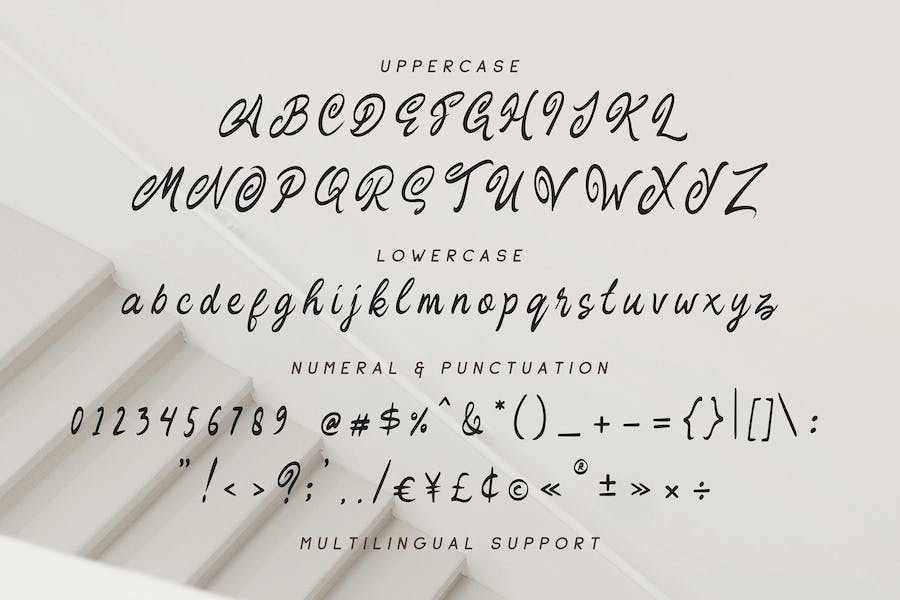 UPPERCASE
ABCDEFGHIJKL
MNOPQRSTUVWXYZ
LOWERCASE
abcdefghijklmnopqrstuvwxyz
NUMERAL & PUNCTUATION
0123456789 @#$%^&*()_+-={}|[]\:
"!<>?;',./€¥£¢©«®±»×÷
MULTILINGUAL SUPPORT